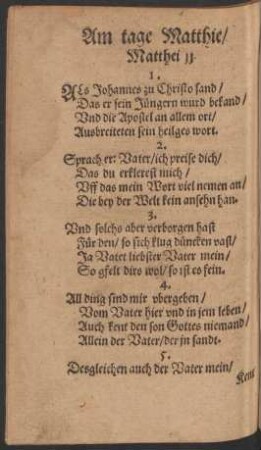 Am tage Matthie/
Matthei 11.
1.
ALs Johannes zu Christo sand/
Das er sein Jüngern wurd bekand/
Vnd die Apostel an allem ort/
Ausbreiteten sein heilges wort.
2.
Sprach er: Vater/ich preise dich/
Das du erklerest mich/
Vff das mein Wort viel nemen an/
Die bey der Welt kein ansehn han.
3.
Vnd solchs aber verborgen hast
Für den/so sich klug düncken vast/
Ja Vater liebster Vater mein/
So gfelt dirs wol/so ist es fein.
4.
All ding sind mir vbergeben/
Vom Vater hier vnd in jem leben/
Auch kent den son Gottes niemand/
Allein der Vater/der jn sandt.
5.
Desgleichen auch der Vater mein/
Kent